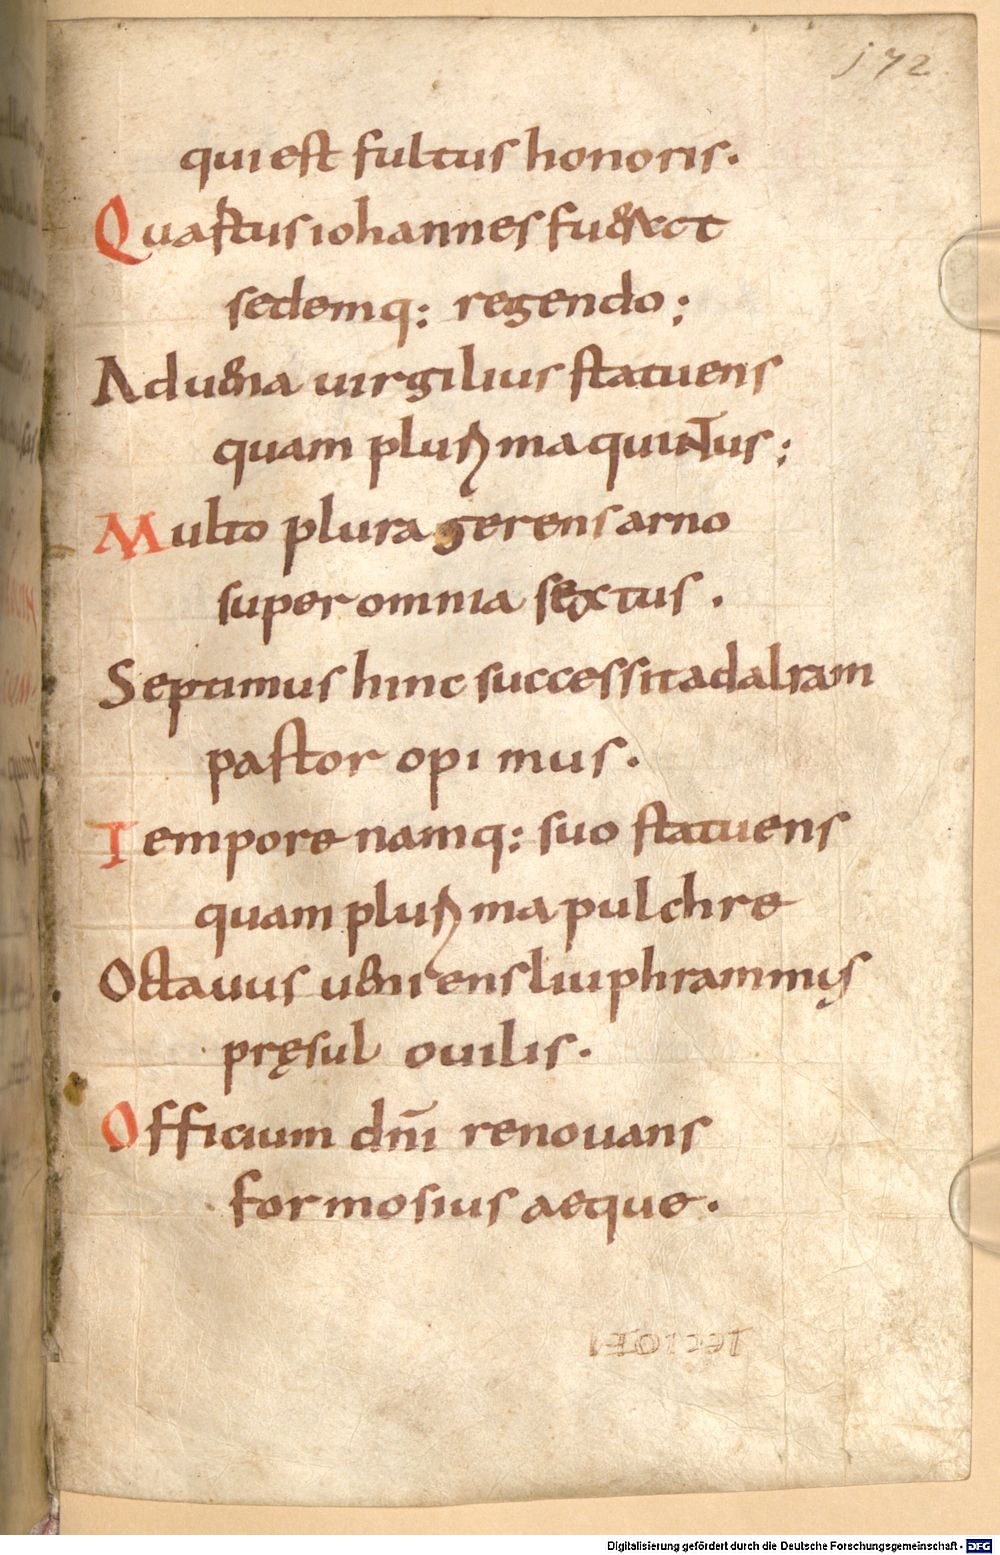 172
qui est fultus honoris.
Quartus iohannes fuerat
sedemq: regendo;
Aduena uirgilius statuens
quam plurima quintus;
Multo plura gerens arno
super omnia sextus.
Septimus hinc successit adalram
pastor opimus.
Tempore namq: suo statuens
quam plurima pulchre
Octauus ueniens liuphrammus
pręsul ouilis.
Officium dn̄i renouans
formosius aeque.
Digitalisierung gefördert durch die Deutsche Forschungsgemeinschaft - DFG